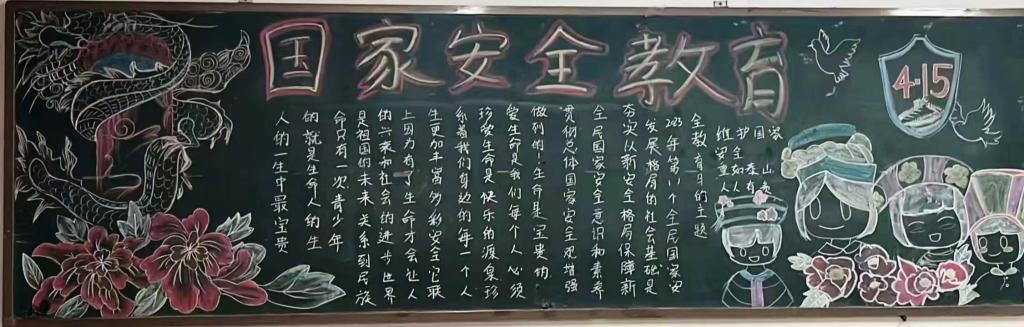 国家安全教育
4·15
人的一生中最宝贵
的就是生命人的生
命只有一次青少年
是祖国的未来关系到民族
的兴衰和社会的进步世界
上因为有了生命才会让人
生更加丰富多彩安全它联
系着我们身边的每一个人
珍爱生命是快乐的源泉珍
爱生命是我们每个人心须
做到的.生命是宝贵的
贯彻总体国家安全观增强
全民国家安全意识和素养
夯实以新安全格局保障新
发展格有的社会基础是
年第八个全民国家安
全教育日的主题
维护国家
安全如泰山
重人人有责